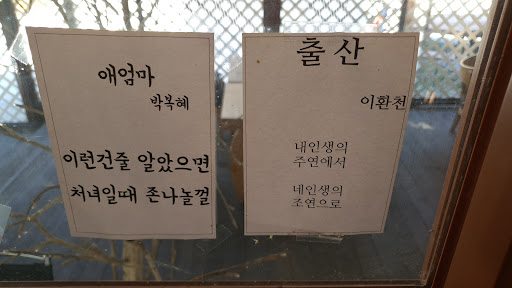 애엄마
박복혜
이런건줄 알았으면
처녀일때 존나놀껄
출산
이환천
내인생의
주연에서
네인생의
조연으로